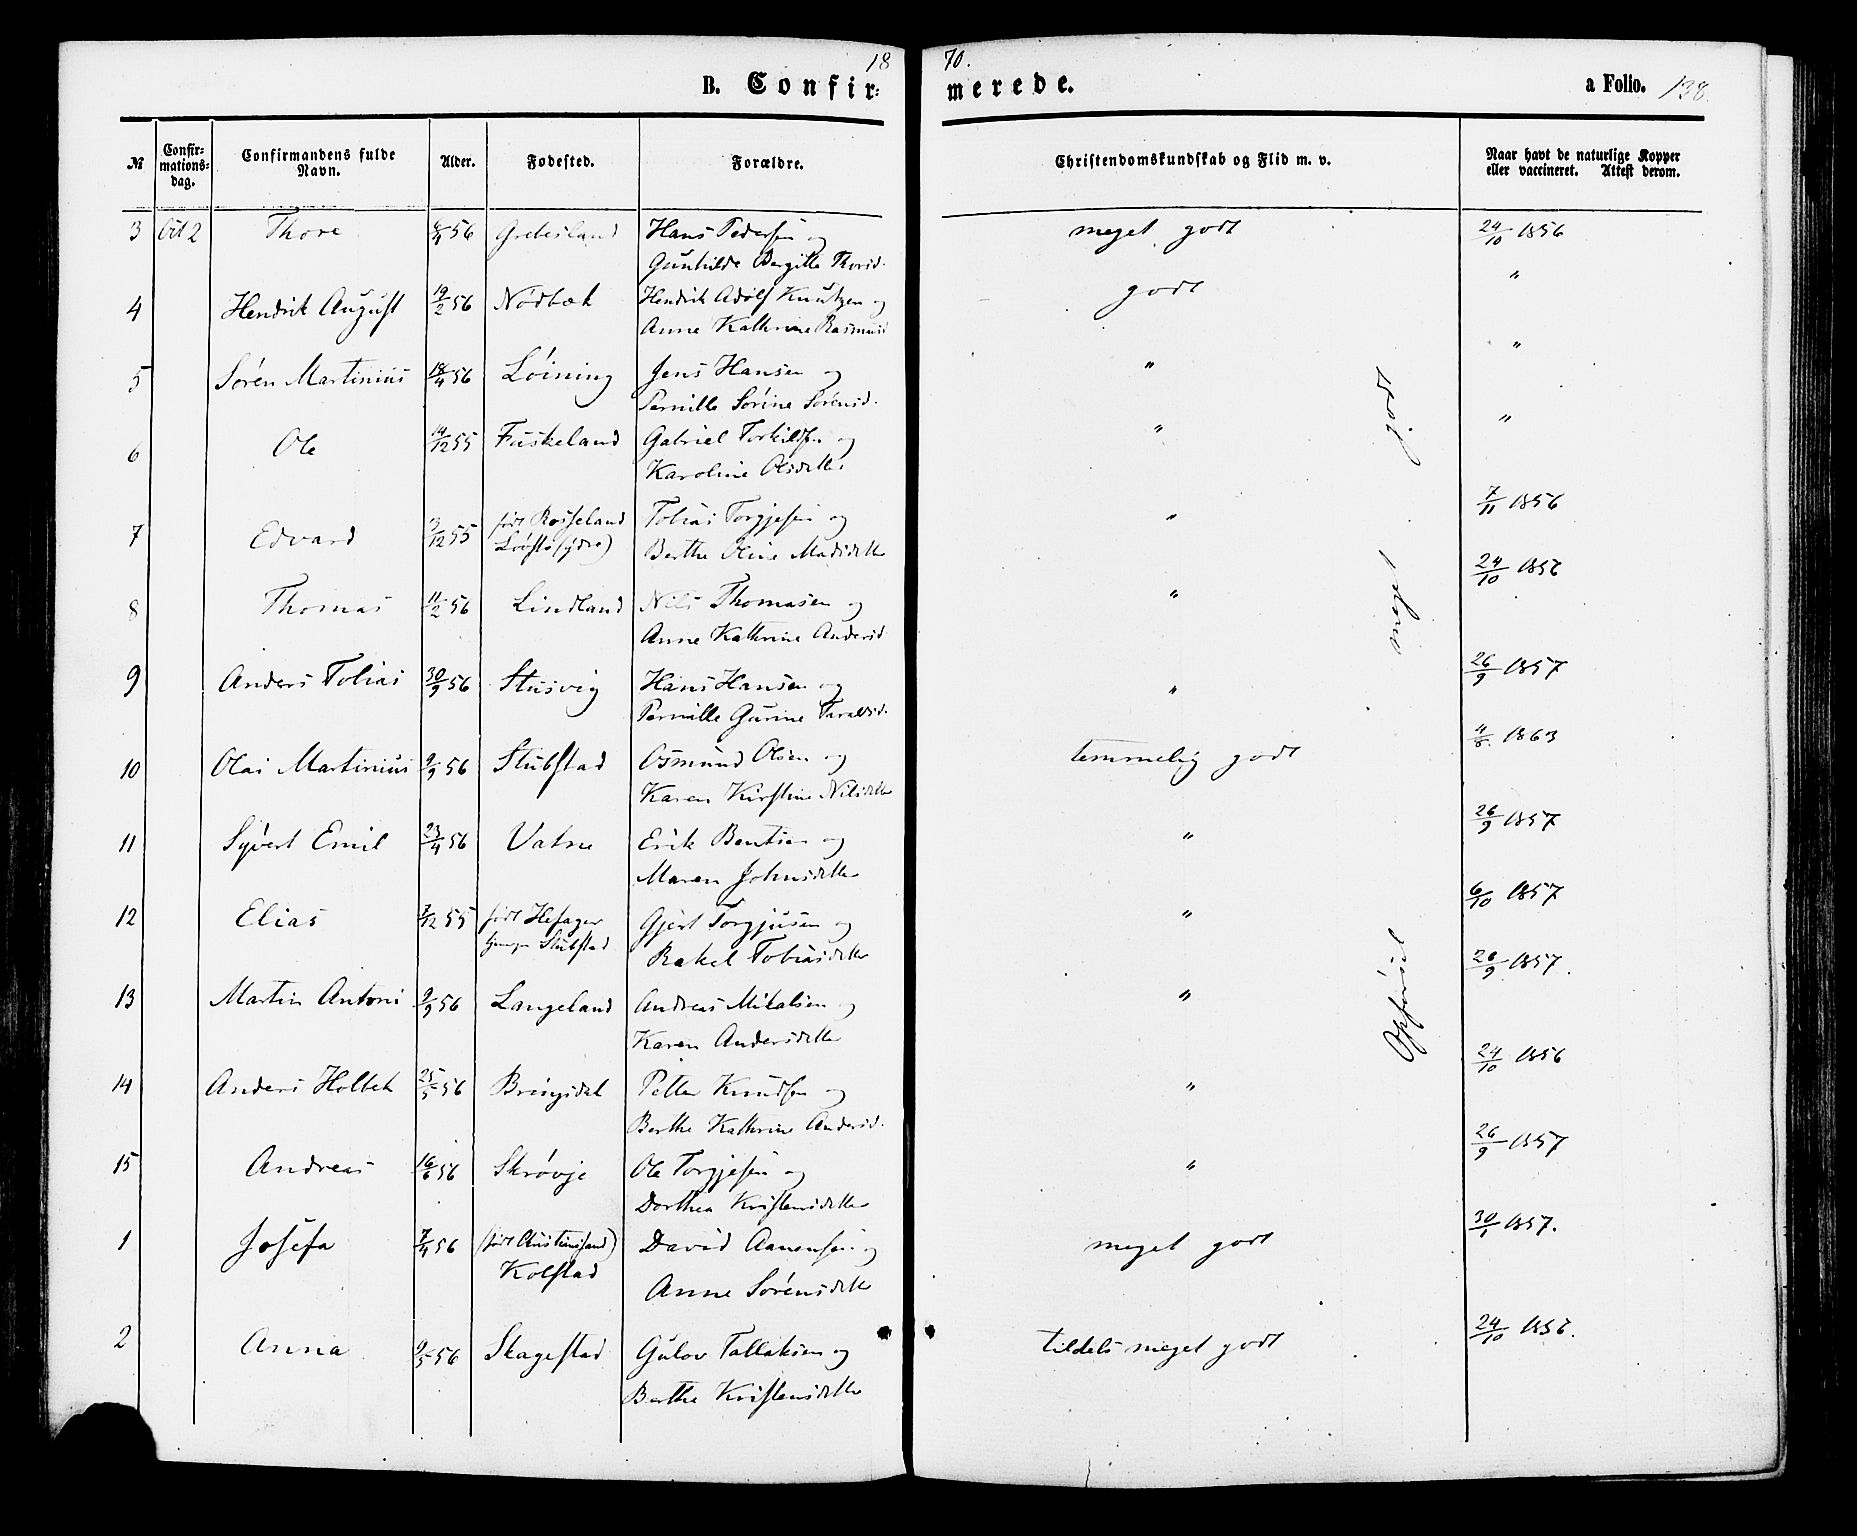 18 70.
B. Confir: merede. a Folio. 138.
№ Confir- mations- dag. Confirmandens fulde Navn. Alder. Fødested. Forældre. Christendomskundskab og Flid m. v. Naar havt de naturlige Kopper eller vaccineret. Attest derom.
3 Oct 2 Thore 56 Hans Pedersen og meget godt 24/10 1856
Gunhilde Bergitte Thorsd.
4 Hendrik August 19/2 56 Nødbæk Hendrik Adolf Knutzen og godt "
Anne Kathrine Rasmusd
5 Søren Martinius 18/4 56 Løining Jens Hansen og " "
Pernille Sørine Sørensd.
6 Ole 14/12 55 Fuskeland Gabriel Torkildsen og " "
Karoline Olsdatter
7 Edvard 3/12 55 født Rosseland Tobias Torgjesen og " 7/11 1856
(ydre) Berthe Oline Madsdatter
8 Thomas 11/2 56 Lindland Nils Thomasen og " 24/10 1856
Anne Kathrine Andersd
9 Anders Tobias 30/9 56 Stusvig Hans Hansen og " 26/9 1857
Pernille Gurine Taraldsd.
10 Olai Martinius 9/9 56 Stubstad Osmund Olsen og temmelig godt 4/8 1863
Karen Kirstine Nilsdatter
11 Syvert Emil 23/4 56 Vatne Erik Bentsen og " 26/9 1857
Maren Johnsdatter
12 Elias 7/12 55 født Hesager Gjert Torgjusen og " 6/10 1857
Stubstad Rakel Tobiasdatter
13 Martin Antoni 9/9 56 Langeland Andreas Mikalsen og " 26/9 1857.
Karen Andersdatter
14 Anders Holbek 25/5 56 Bringsdal Petter Knudsen og " 24/10 1856
Berthe Kathrine Andersd.
15 Andreas 16/6 56 Skrøvje Ole Torgjesen og " 26/9 1857
Dorthea Kristensdatter
1 Josefa 7/4 56 (født Christianssand) David Aanensen og meget godt 30/ 1857.
Kolstad Anne Sørensdatter
2 Anna 9/5 56 Skagestad Gulov Tallaksen og tildels meget godt 24/10 1856.
Berthe Kristensdatter
Opførsel meget godt